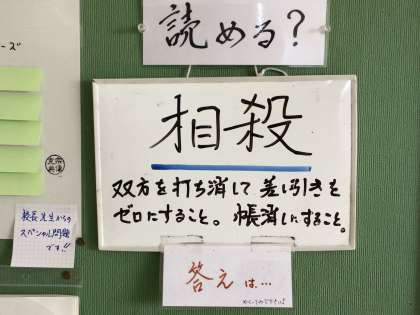 読める?
ーズ
相殺
双方を打ち消して差し引きを
ゼロにすること。帳消しにすること。
校長先生からの
スペシャル問題
です!!
答えは…